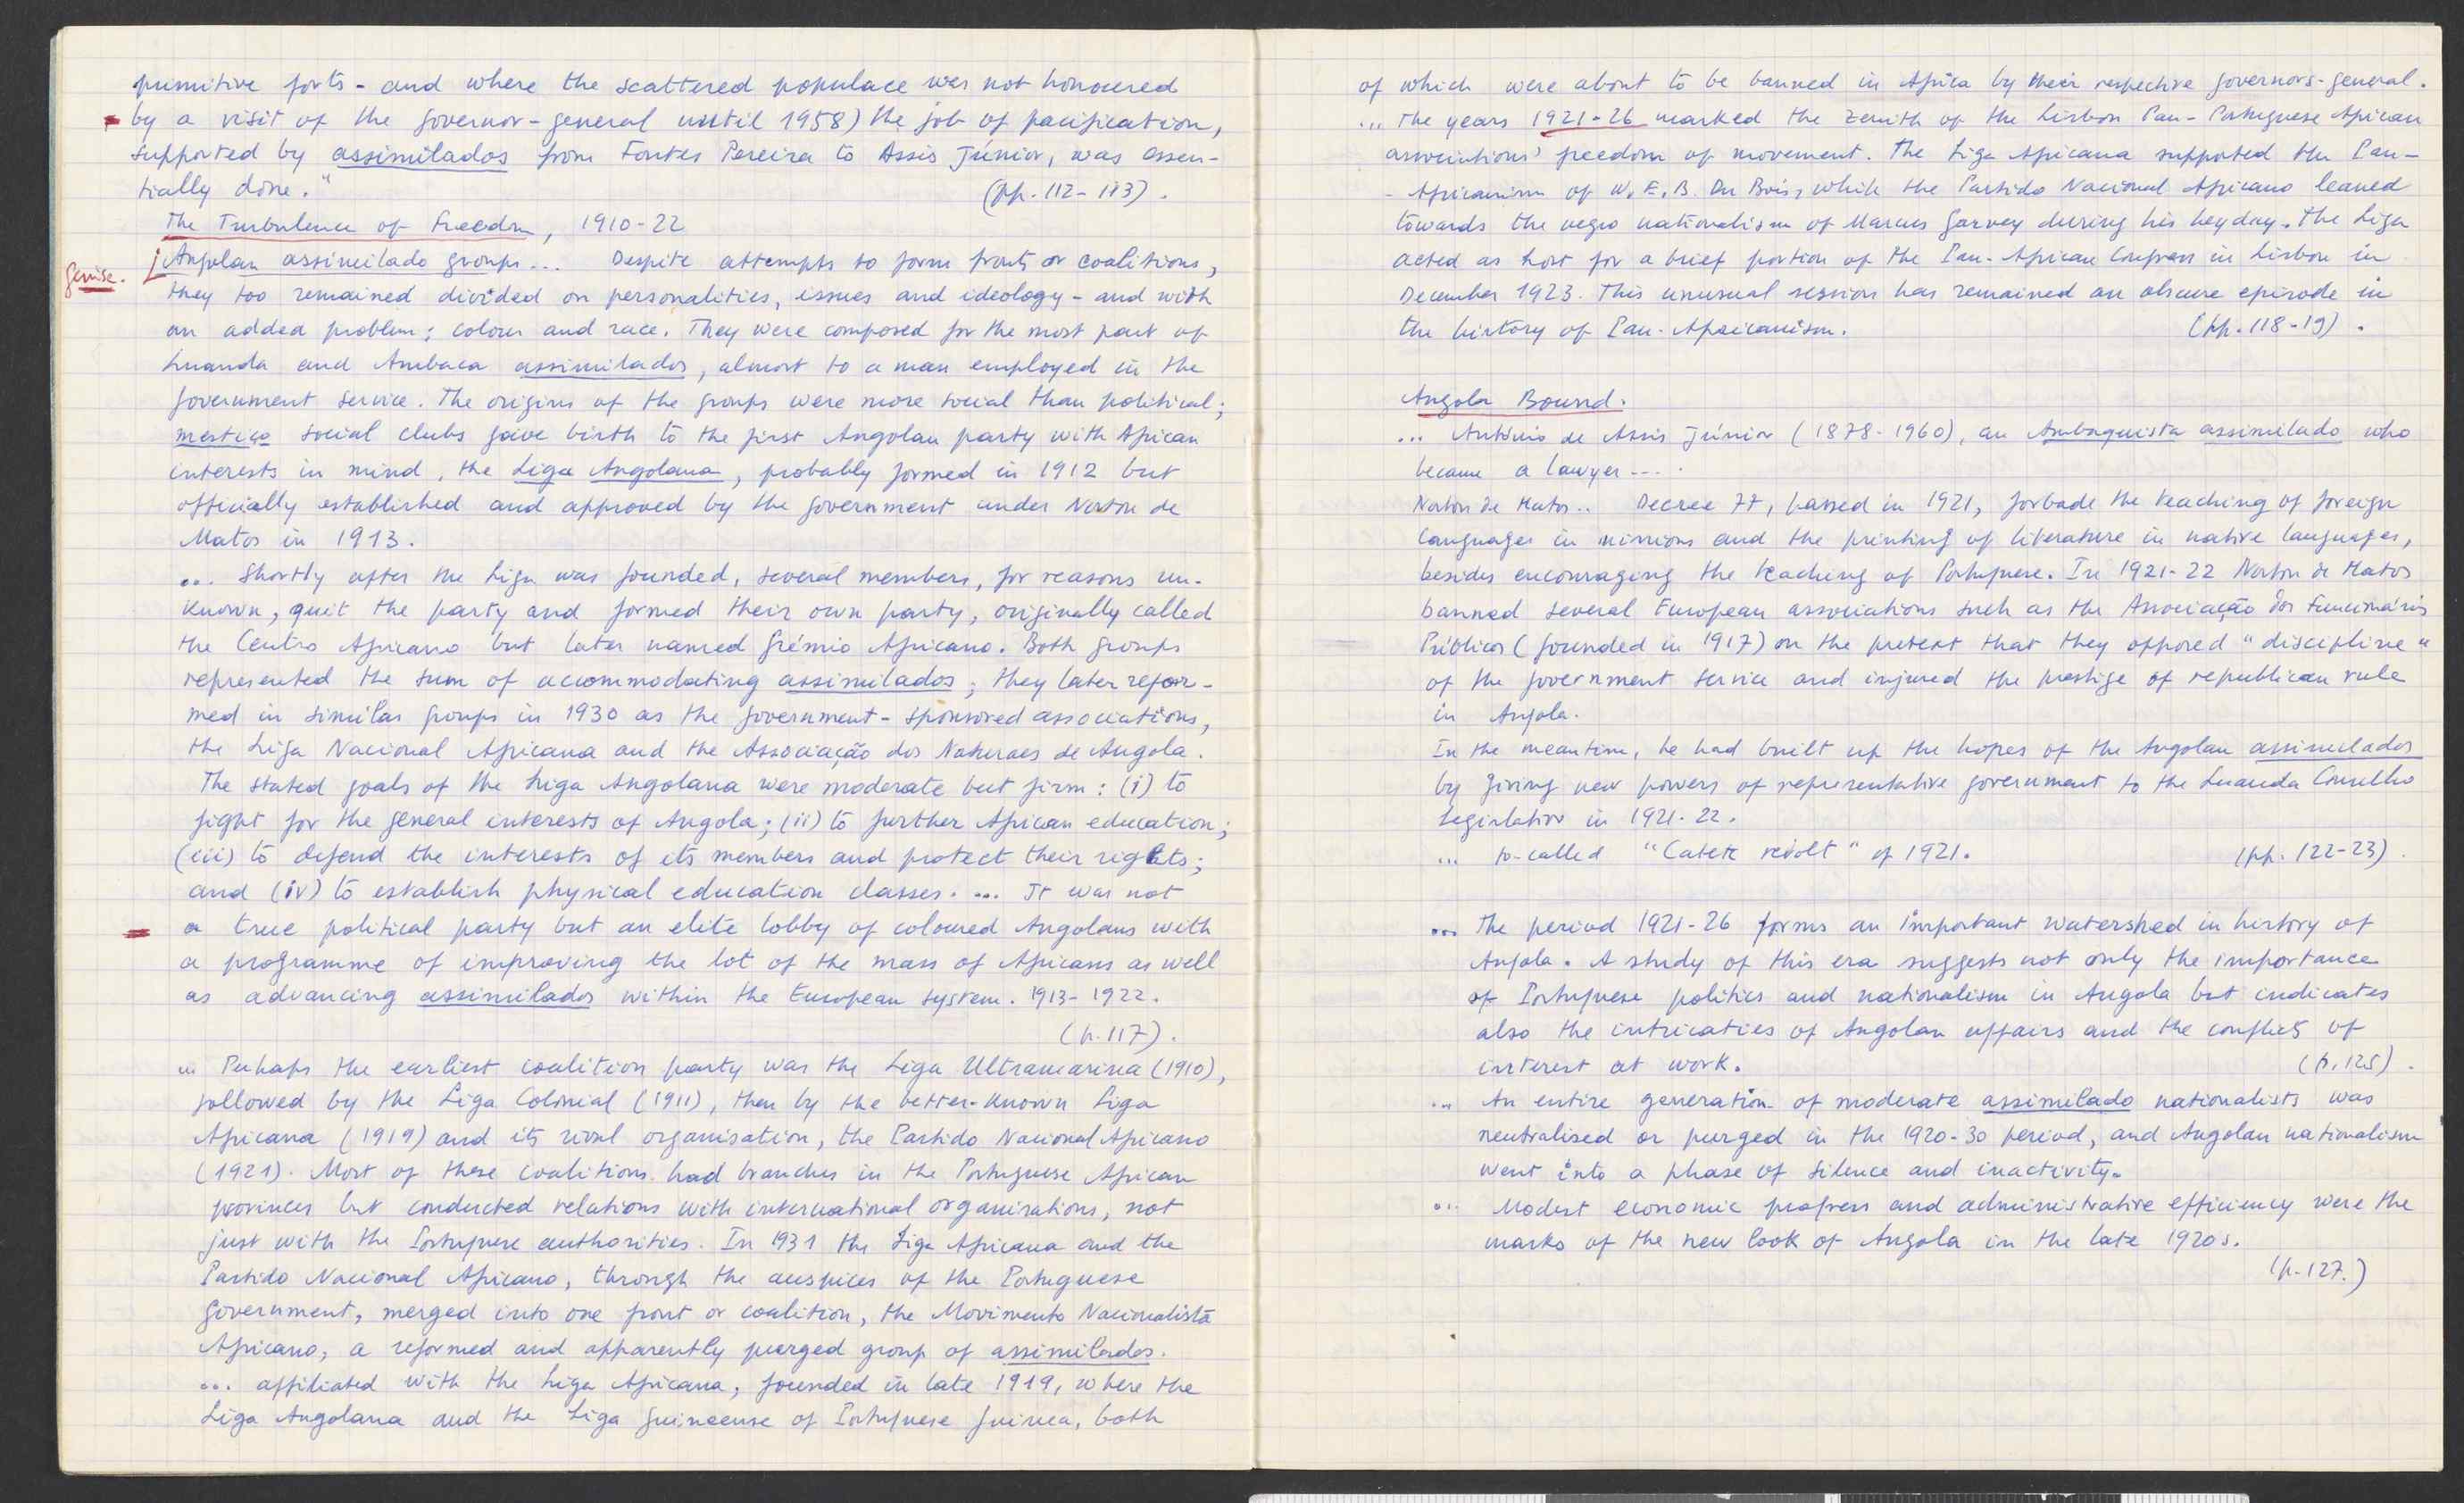 primitive forts - and where the scattered populace was not honoured
by a visit of the governor-general until 1958) the job of pacification,
supported by assimilados from Fontes Pereira to Assis Júnior, was essen-
tially done."
(pp. 112-113).
The Turbulence of Freedom, 1910-22
[Angolan assimilado groups... Despite attempts to form fronts or coalitions,
they too remained divided on personalities, issues and ideology - and with
an added problem: colour and race. They were composed for the most part of
Luanda and Ambaca assimilados, almost to a man employed in the
government service. The origins of the groups were more social than political;
mestiço social clubs gave birth to the first Angolan party with African
interests in mind, the Liga Angolana, probably formed in 1912 but
officially established and approved by the government under Norton de
Matos in 1913.
... Shortly after the Liga was founded, several members, for reasons un-
known, quit the party and formed their own party, originally called
the Centro Africano but later named Grémio Africano. Both groups
represented the sum of accommodating assimilados; they later refor-
med in similar groups in 1930 as the government-sponsored associations,
the Liga Nacional Africana and the Associação dos Naturaes de Angola.
The stated goals of the Liga Angolana were moderate but firm: (i) to
fight for the general interests of Angola; (ii) to further African education;
(iii) to defend the interests of its members and protect their rights;
and (iv) to establish physical education classes. ... It was not
a true political party but an elite lobby of coloured Angolans with
a programme of improving the lot of the mass of Africans as well
as advancing assimilados within the European system. 1913-1922.
(p. 117).
... Perhaps the earliest coalition party was the Liga Ultramarina (1910),
followed by the Liga Colonial (1911), then by the better-known Liga
Africana (1919) and its rival organisation, the Partido Nacional Africano
(1921). Most of these coalitions had branches in the Portuguese African
provinces but conducted relations with international organisations, not
just with the Portuguese authorities. In 1931 the Liga Africana and the
Partido Nacional Africano, through the auspices of the Portuguese
government, merged into one front or coalition, the Movimento Nacionalista
Africano, a reformed and apparently purged group of assimilados.
... affiliated with the Liga Africana, founded in late 1919, where the
Liga Angolana and the Liga Guineense of Portuguese Guinea, both
of which were about to be banned in Africa by their respective governors-general.
... The years 1921-26 marked the zenith of the Lisbon Pan-Portuguese African
associations' freedom of movement. The Liga Africana supported the Pan-
-Africanism of W.E.B. Du Bois, while the Partido Nacional Africano leaned
towards the negro nationalism of Marcus Garvey during his heyday. The Liga
acted as host for a brief portion of the Pan-African Congress in Lisbon in
December 1923. This unusual session has remained an obscure episode in
the history of Pan-Africanism. (pp. 118-19).
Angola Bound.
... António de Assis Júnior (1878-1960), an Ambaquista assimilado who
became a lawyer....
Norton de Matos.. Decree 77, passed in 1921, forbade the teaching of foreign
languages in missions and the printing of literature in native languages,
besides encouraging the teaching of Portuguese. In 1921-22 Norton de Matos
banned several European associations such as the Associação dos Funcionários
Públicos (founded in 1917) on the pretext that they opposed "discipline"
of the government service and injured the prestige of republican rule
in Angola.
In the meantime, he had built up the hopes of the Angolan assimilados
by giving new powers of representative government to the Luanda Conselho
Legislativo in 1921-22.
... so-called "Catete revolt" of 1921. (pp. 122-23).
... The period 1921-26 forms an important watershed in history of
Angola. A study of this era suggests not only the importance
of Portuguese politics and nationalism in Angola but indicates
also the intricaties of Angolan affairs and the conflicts of
interest at work. (p. 125).
... An entire generation of moderate assimilado nationalists was
neutralised or purged in the 1920-30 period, and Angolan nationalism
went into a phase of silence and inactivity.
... Modest economic progress and administrative efficiency were the
marks of the new look of Angola in the late 1920s.
(p. 127.)